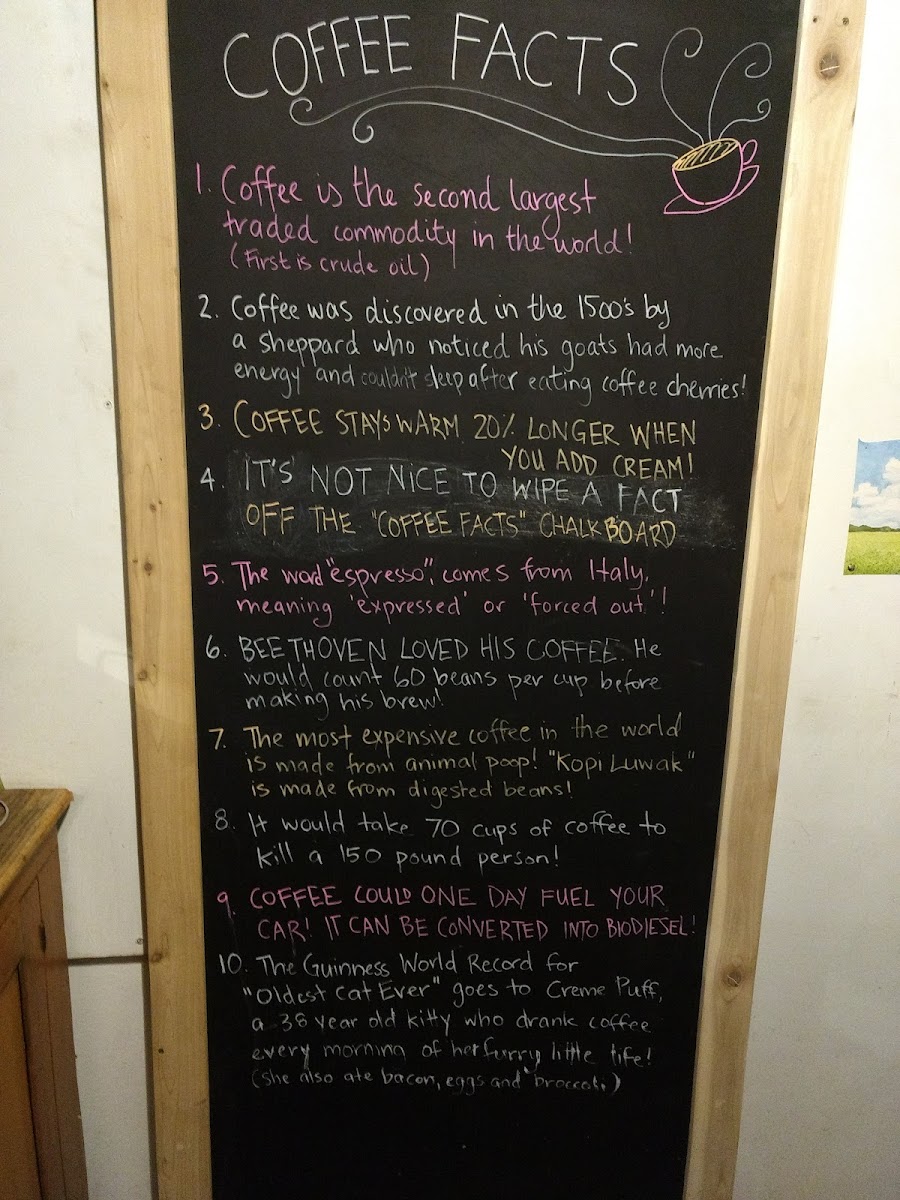 COFFEE FACTS
1. Coffee is the second largest
traded commodity in the world!
(First is crude oil)
2. Coffee was discovered in the 1500's by
a sheppard who noticed his goats had more
energy and couldn't sleep after eating coffee cherries!
3. COFFEE STAYS WARM 20% LONGER WHEN
YOU ADD CREAM!
4. IT'S NOT NICE TO WIPE A FACT
OFF THE "COFFEE FACTS" CHALKBOARD
5. The word "espresso", comes from Italy,
meaning 'expressed' or 'forced out'!
6. BEETHOVEN LOVED HIS COFFEE. He
would count 60 beans per cup before
making his brew!
7. The most expensive coffee in the world
is made from animal poop! "Kopi Luwak"
is made from digested beans!
8. It would take 70 cups of coffee to
kill a 150 pound person!
9. COFFEE COULD ONE DAY FUEL YOUR
CAR! IT CAN BE CONVERTED INTO BIODIESEL!
10. The Guinness World Record for
"Oldest Cat Ever" goes to Creme Puff,
a 38 year old kitty who drank coffee
every morning of her furry little life!
(she also ate bacon, eggs and broccoli)